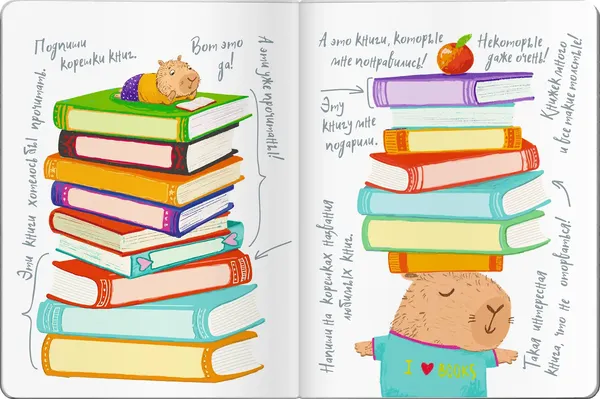 Подпиши
корешки книг.
Вот это
да!
А эти уже прочитаны!!
Эти книги хотелось бы прочитать.
А это книги, которые
мне понравились!
Некоторые
даже очень!
Книжек много
и все такие толстые!
Эту
книгу мне
подарили.
Напиши на корешках названия
любимых книг.
Такая интересная
книга, что не оторваться!
I ♥ BOOKS